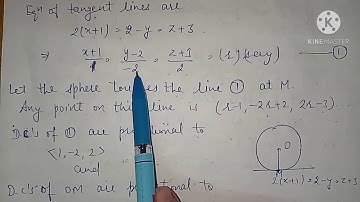 Eqn of tangent lines are
2(x+1) = 2-y = z+3
⇒ x+1/1 = y-2/-2 = z+3/2 = (r) (say) — ①
Let the sphere touches the line ① at M.
Any point on this line is (r-1, -2r+2, 2r-3).
D.c's of ① are proportional to
<1, -2, 2>
and
D.c's of OM are proportional to
O
2(x+1) = 2-y = z+3
Made with
KINEMASTER